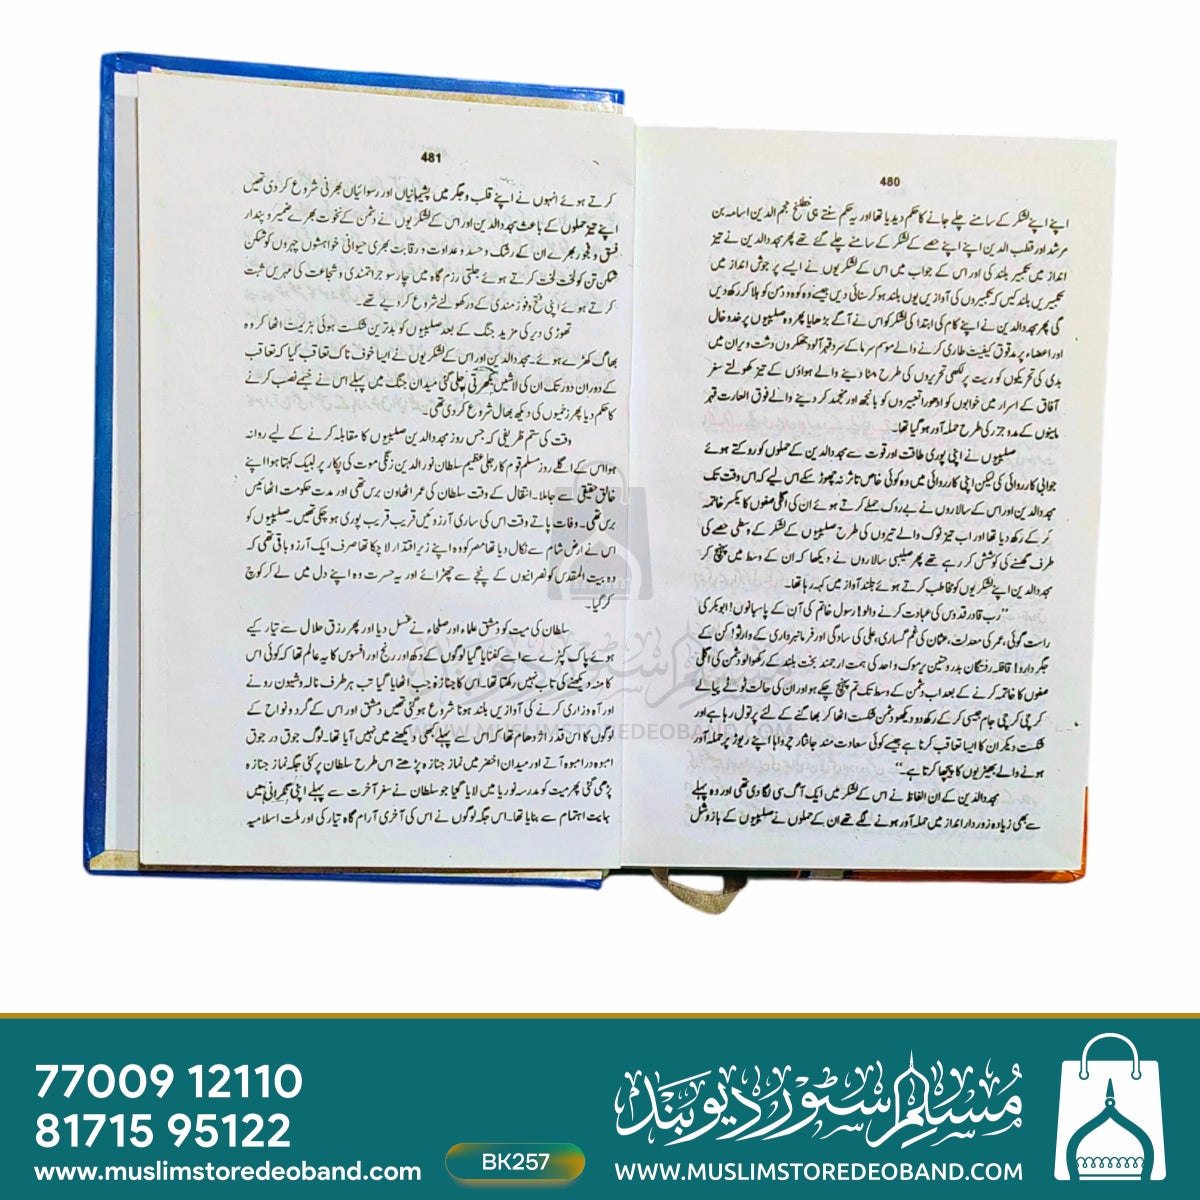 480
اپنے اپنے لشکر کے سامنے چلے جانے کا حکم دیدیا تھا اور یہ حکم سنتے ہی خطلخ نجم الدین اسامہ بن
مرشد اور قطب الدین اپنے اپنے حصے کے لشکر کے سامنے چلے گئے تھے پھر مجدد الدین نے تیز
انداز میں تکبیر بلند کی اور اس کے جواب میں اس کے لشکریوں نے ایسے پر جوش انداز میں
تکبیریں بلند کیں کہ تکبیروں کی آوازیں یوں بلند ہو کر سنائی دیں جیسے وہ کوہ و دمن کو ہلا کر رکھ دیں
گی پھر مجدد الدین نے اپنے کام کی ابتدا کی لشکر کو اس نے آگے بڑھایا پھر وہ صلیبیوں پر خدوخال
اور اعضاء پر مدقوق کیفیت طاری کرنے والے موسم سرما کے سرد قہر آلود جھکروں دشت ویران میں
بدی کی تحریکوں کو ریت پر لکھی تحریروں کی طرح مٹا دینے والے ہواؤں کے تیز کھولتے سفر
آفاق کے اسرار میں خوابوں کو ادھورا تعبیروں کو بانجھ اور منجمد کر دینے والے فوق العارت قہر
مانیوں کے مدوجزر کی طرح حملہ آور ہو گیا تھا۔
صلیبیوں نے اپنی پوری طاقت اور قوت سے مجدد الدین کے حملوں کو روکتے ہوئے
جوابی کارروائی کی لیکن اپنی کارروائی میں وہ کوئی خاص تاثر نہ چھوڑ سکے اس لیے کہ اس وقت تک
مجدد الدین اور اس کے سالاروں نے بے روک حملے کرتے ہوئے ان کی اگلی صفوں کا یکسر خاتمہ
کر کے رکھ دیا تھا اور اب تیز نوک والے تیروں کی طرح صلیبیوں کے لشکر کے وسطی حصے کی
طرف گھسنے کی کوشش کر رہے تھے پھر صلیبی سالاروں نے دیکھا کہ ان کے وسط میں پہنچ کر
مجدد الدین اپنے لشکریوں کو مخاطب کرتے ہوئے بلند آواز میں کہہ رہا تھا۔
"رب قادر قدوس کی عبادت کرنے والو! رسول خاتم کی آن کے پاسبانوں! ابوبکر کی
راست گوئی، عمر کی معدلت، عثمان کی غم گساری، علی کی سادگی اور فرمانبرداری کے وارثو! کن کے
جگر دارو! قافلہ رفتگان بدر و حنین یرموک واحد کی ہمت ارجمند بخت بلند کے رکھوالو دشمن کی اگلی
صفوں کا خاتمہ کرنے کے بعد اب دشمن کے وسط تک تم پہنچ چکے ہو اور ان کی حالت ٹوٹے پیالے
کرچی کرچی جام جیسی کر کے رکھ دو دیکھو دشمن شکست اٹھا کر بھاگنے کے لئے پر تول رہا ہے اور
شکست دیکر ان کا ایسا تعاقب کرنا ہے جیسے کوئی سعادت مند جانثار چرواہا اپنے ریوڑ پر حملہ آور
ہونے والے بھیڑیوں کا پیچھا کرتا ہے۔"
مجدد الدین کے ان الفاظ نے اس کے لشکر میں ایک آگ سی لگا دی تھی اور وہ پہلے
سے بھی زیادہ زوردار انداز میں حملہ آور ہونے لگے تھے ان کے حملوں نے صلیبیوں کے بازو شل
481
کرتے ہوئے انہوں نے اپنے قلب و جگر میں پشیمانیاں اور رسوائیاں بھرنی شروع کر دی تھیں
اپنے تیز حملوں کے باعث مجدد الدین اور اس کے لشکریوں نے دشمن کے نخوت بھرے ضمیر و پندار
فسق و فجور بھرے ان کے رشک و حسد و عداوت و رقابت بھری حیوانی خواہشوں چہروں کو شکن
شکن تن کو لخت لخت کرتے ہوئے جلتی رزم گاہ میں چار سو جراتمندی و شجاعت کی مہریں ثبت
کرتے ہوئے اپنی فتح و فوز مندی کے در کھولنے شروع کر دیے تھے۔
تھوڑی دیر کی مزید جنگ کے بعد صلیبیوں کو بدترین شکست ہوئی ہزیمت اٹھا کر وہ
بھاگ کھڑے ہوئے۔ مجدد الدین اور اس کے لشکریوں نے ایسا خوف ناک تعاقب کیا کہ تعاقب
کے دوران دور تک ان کی لاشیں بکھرتی چلی گئی میدان جنگ میں پہلے اس نے خیمے نصب کرنے
کا حکم دیا پھر زخمیوں کی دیکھ بھال شروع کر دی تھی۔
وقت کی ستم ظریفی کہ جس روز مجدد الدین صلیبیوں کا مقابلہ کرنے کے لیے روانہ
ہوا اس کے اگلے روز مسلم قوم کا رجلی عظیم سلطان نور الدین زنگی موت کی پکار پر لبیک کہتا ہوا اپنے
خالق حقیقی سے جا ملا۔ انتقال کے وقت سلطان کی عمر اٹھاون برس تھی اور مدت حکومت اٹھائیس
برس تھی۔ وفات پاتے وقت اس کی ساری آرزوئیں قریب قریب پوری ہو چکی تھیں۔ صلیبیوں کو
اس نے ارض شام سے نکال دیا تھا مصر کو وہ اپنے زیر اقتدار لا چکا تھا صرف ایک آرزو باقی تھی کہ
وہ بیت المقدس کو نصرانیوں کے پنجے سے چھڑائے اور یہ حسرت وہ اپنے دل میں لے کر کوچ
کر گیا۔
سلطان کی میت کو دمشق علماء اور صلحاء نے غسل دیا اور پھر رزق حلال سے تیار کیے
ہوئے پاک کپڑے سے اسے کفنایا گیا لوگوں کے دکھ اور رنج اور افسوس کا یہ عالم تھا کہ کوئی اس
کا منہ دیکھنے کی تاب نہیں رکھتا تھا۔ اس کا جنازہ جب اٹھایا گیا تب ہر طرف نالہ و شیون رونے
اور آہ و زاری کرنے کی آوازیں بلند ہونا شروع ہو گئی تھیں دمشق اور اس کے گرد و نواح کے
لوگوں کا اس قدر اژدھام تھا کہ اس سے پہلے کبھی دیکھنے میں نہیں آیا تھا۔ لوگ جوق در جوق
انبوہ در انبوہ آتے اور میدان اخضر میں نماز جنازہ پڑھتے اس طرح سلطان پر کئی جگہ نماز جنازہ
پڑھی گئی پھر میت کو مدرسہ نوریا میں لایا گیا جو سلطان نے سفر آخرت سے پہلے اپنی نگرانی میں
نہایت اہتمام سے بنایا تھا۔ اس جگہ لوگوں نے اس کی آخری آرام گاہ تیار کی اور ملت اسلامیہ
muslim
مسلم سٹور دیوبند
WWW.MUSLIMSTOREDEOBAND.COM
77009 12110
81715 95122
www.muslimstoredeoband.com
BK257
مسلم سٹور دیوبند
WWW.MUSLIMSTOREDEOBAND.COM